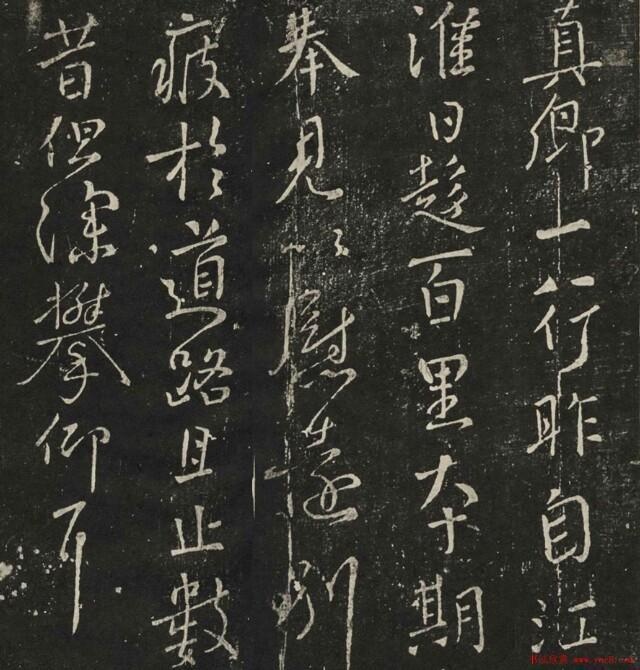 真卿一八行昨自江
淮日趍一百里大本期
舉見以慰遠別
疲於道路且止數
昔但深攀仰耳